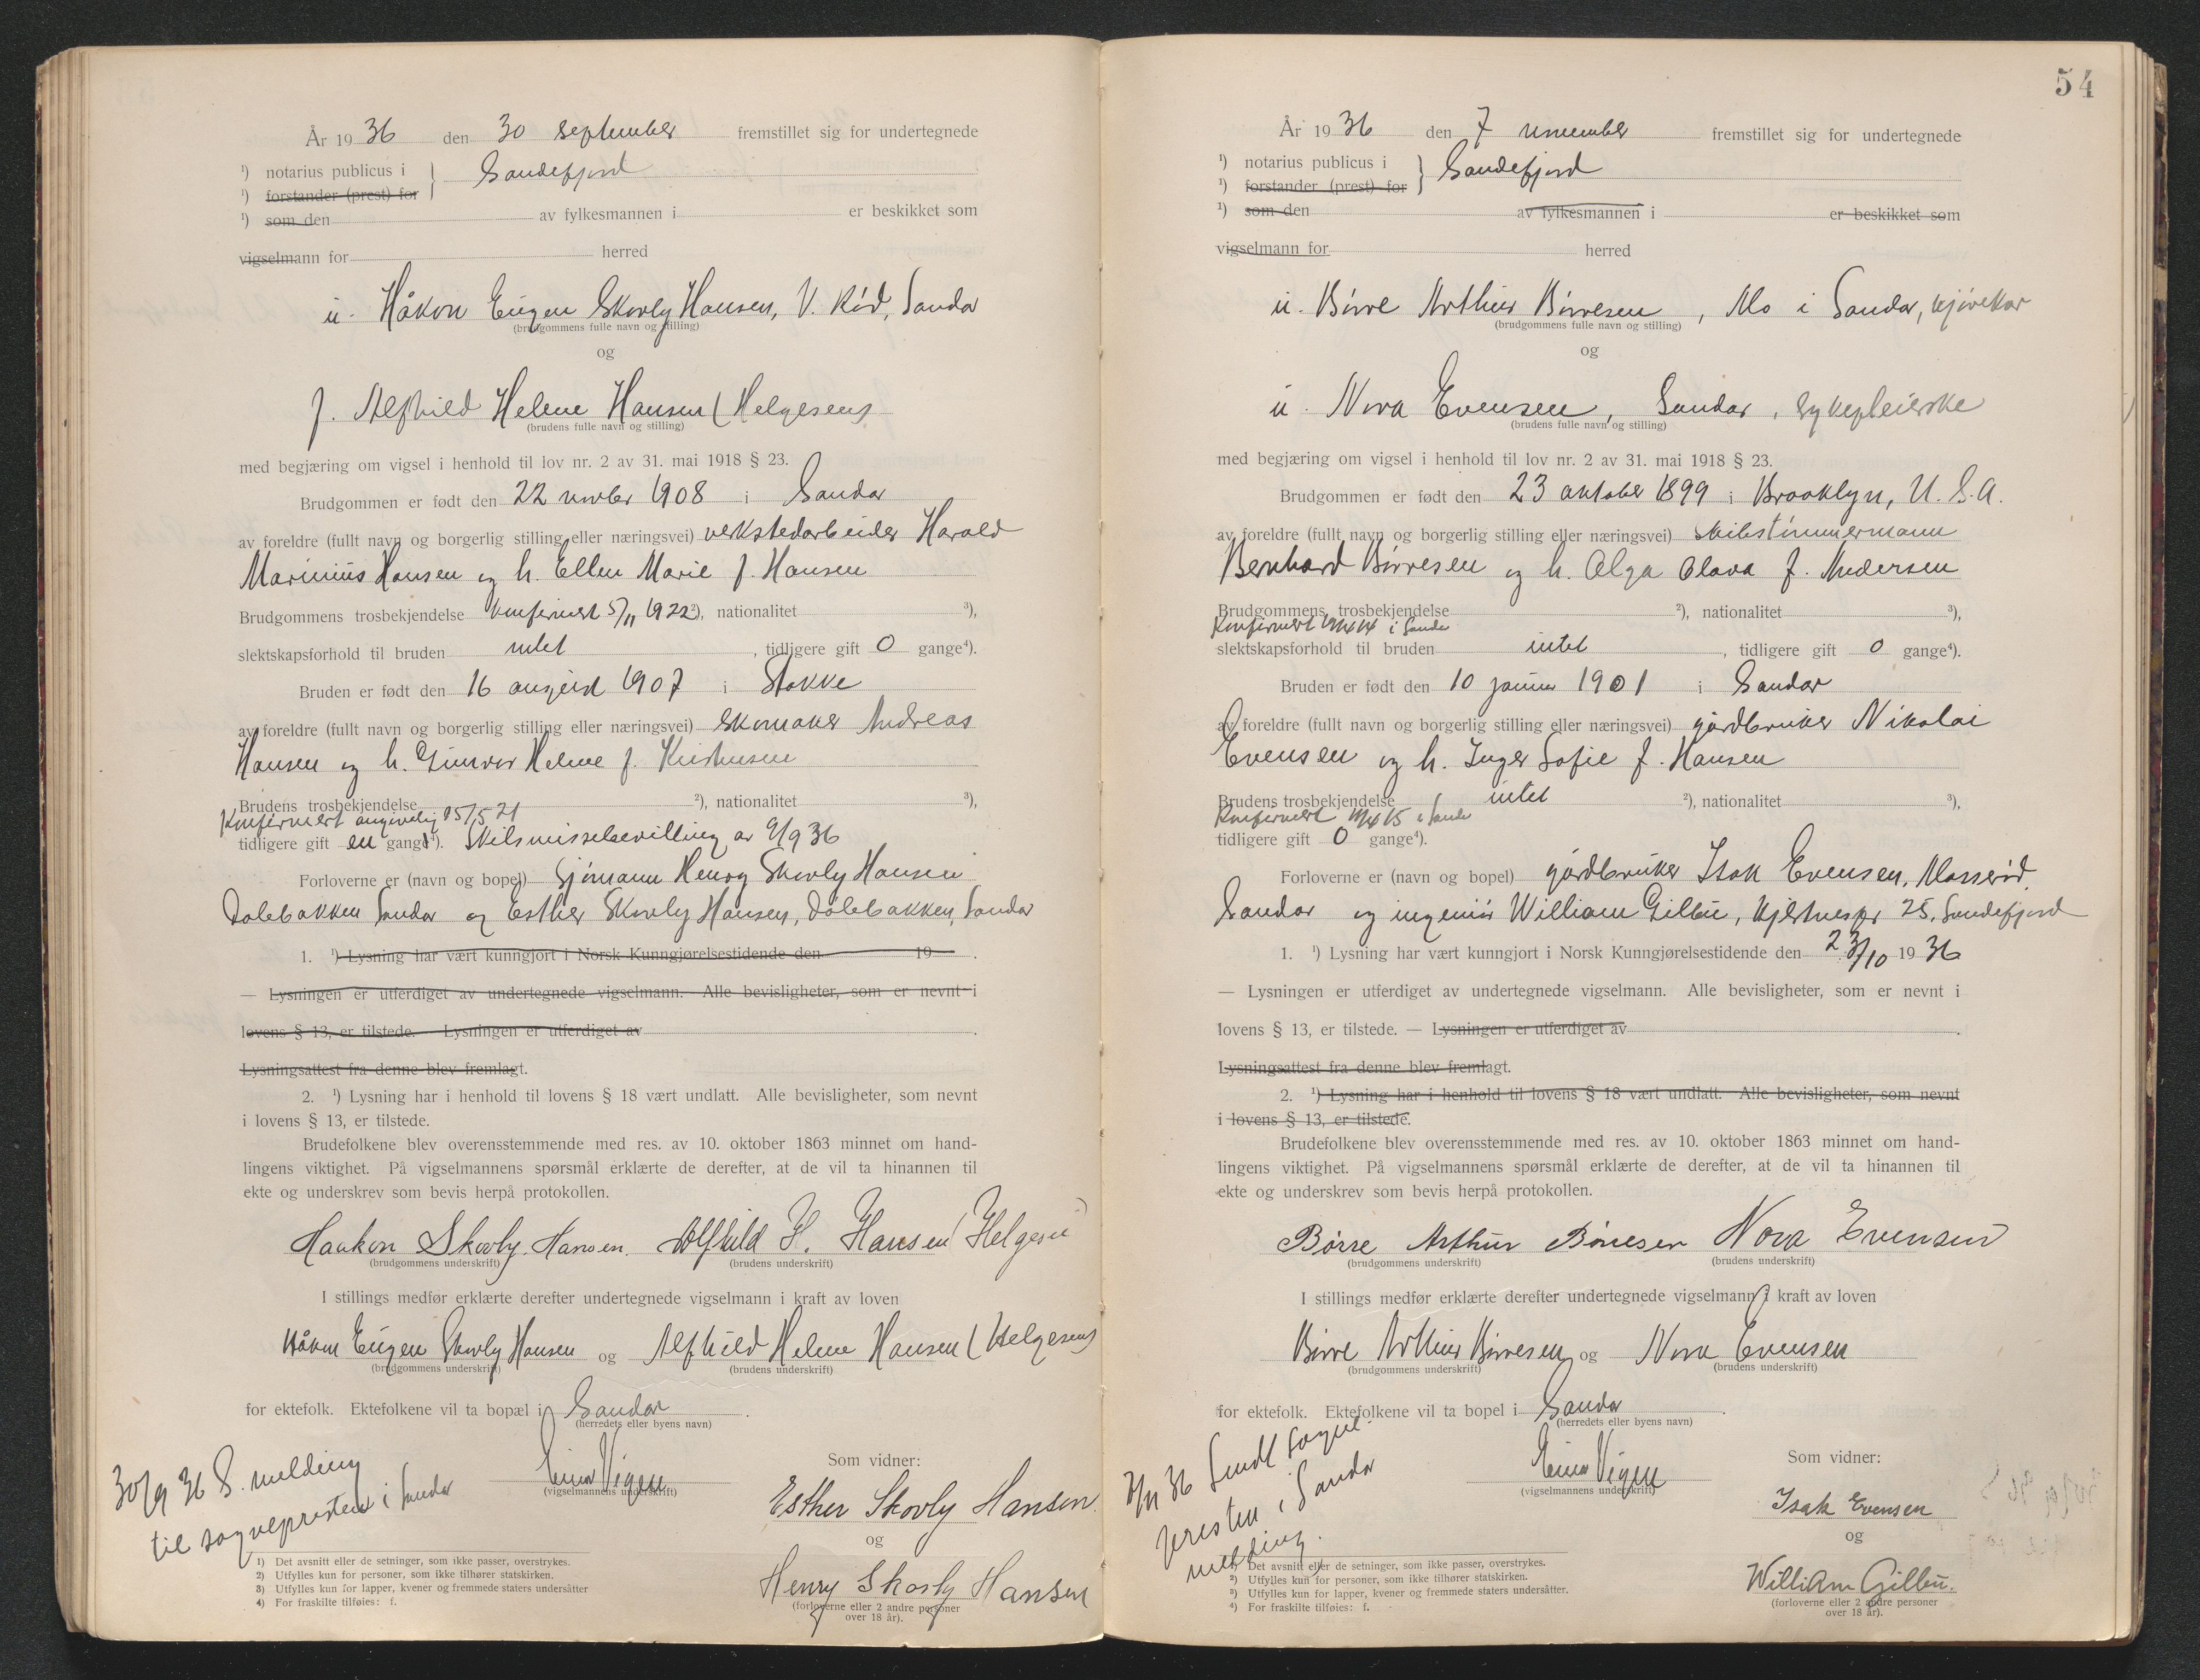 År 1936 den 30 september fremstillet sig for undertegnede
¹) notarius publicus i } Sandefjord
¹) forstander (prest) for
¹) som den av fylkesmannen i er beskikket som
vigselmann for herred
u. Håkon Eugen Skovly Hansen, V. Rød, Sandar
(brudgommens fulle navn og stilling)
og
f. Alfhild Helene Hansen (Helgesen)
(brudens fulle navn og stilling)
med begjæring om vigsel i henhold til lov nr. 2 av 31. mai 1918 § 23.
Brudgommen er født den 22 novbr 1908 i Sandar
av foreldre (fullt navn og borgerlig stilling eller næringsvei) verkstedarbeider Harald
Marinius Hansen og h. Ellen Marie f. Hansen
Brudgommens trosbekjendelse konfirmert 5/11 1922 ²), nationalitet ³),
slektskapsforhold til bruden intet, tidligere gift 0 gange⁴).
Bruden er født den 16 august 1907 i Stokke
av foreldre (fullt navn og borgerlig stilling eller næringsvei) skomaker Andreas
Hansen og h. Gunvor Helene f.
Brudens trosbekjendelse ²), nationalitet ³),
Konfirmert angivelig 15/5 21
tidligere gift en gang⁴). Skilsmissebevilling av 9/9 36
Forloverne er (navn og bopel) Sjømann Henry Skovly Hansen
Dølebakken Sandar og Esther Skovly Hansen, Dølebakken, Sandar
1. ¹) Lysning har vært kunngjort i Norsk Kunngjørelsestidende den 19 .
— Lysningen er utferdiget av undertegnede vigselmann. Alle bevisligheter, som er nevnt i
lovens § 13, er tilstede. — Lysningen er utferdiget av .
Lysningsattest fra denne blev fremlagt.
2. ¹) Lysning har i henhold til lovens § 18 vært undlatt. Alle bevisligheter, som nevnt
i lovens § 13, er tilstede.
Brudefolkene blev overensstemmende med res. av 10. oktober 1863 minnet om hand-
lingens viktighet. På vigselmannens spørsmål erklærte de derefter, at de vil ta hinannen til
ekte og underskrev som bevis herpå protokollen.
Haakon Skovly Hansen. Alfhild H. Hansen (Helgesen)
(brudgommens underskrift) (brudens underskrift)
I stillings medfør erklærte derefter undertegnede vigselmann i kraft av loven
Håkon Eugen Skovly Hansen og Alfhild Helene Hansen (Helgesen)
(brudgommens underskrift) (brudens underskrift)
for ektefolk. Ektefolkene vil ta bopæl i Sandar .
(herredets eller byens navn)
30/9 36 S. melding
til sognepresten i Sandar
Einar Vigen
(vigselmannens underskrift)
Som vidner:
Esther Skovly Hansen.
og
Henry Skovly Hansen
(forloverne eller 2 andre personer
over 18 år).
1) Det avsnitt eller de setninger, som ikke passer, overstrykes.
2) Utfylles kun for personer, som ikke tilhører statskirken.
3) Utfylles kun for lapper, kvener og fremmede staters undersåtter
4) For fraskilte tilføies: f.
54
År 1936 den 7 november fremstillet sig for undertegnede
¹) notarius publicus i } Sandefjord
¹) forstander (prest) for
¹) som den av fylkesmannen i er beskikket som
vigselmann for herred
u. Børre Arthur Børresen, Mo i Sandar, kjørekar
(brudgommens fulle navn og stilling)
og
u. Nora Evensen, Sandar, sykepleierske
(brudens fulle navn og stilling)
med begjæring om vigsel i henhold til lov nr. 2 av 31. mai 1918 § 23.
Brudgommen er født den 23 oktober 1899 i Brooklyn, U.S.A.
av foreldre (fullt navn og borgerlig stilling eller næringsvei) skibstømmermann
Bernhard Børresen og h. Olga Olava f. Andersen
Brudgommens trosbekjendelse ²), nationalitet ³),
Konfirmert 19/4 14 i Sandar
slektskapsforhold til bruden intet, tidligere gift 0 gange⁴).
Bruden er født den 10 januar 1901 i Sandar
av foreldre (fullt navn og borgerlig stilling eller næringsvei) gårdbruker Nikolai
Evensen og h. Inger Sofie f. Hansen
Brudens trosbekjendelse intet ²), nationalitet ³),
Konfirmert i Sandar
tidligere gift 0 gange⁴).
Forloverne er (navn og bopel) gårdbruker Isak Evensen, Mosserød,
Sandar og ingeniør William Gilbu, 25, Sandefjord
1. ¹) Lysning har vært kunngjort i Norsk Kunngjørelsestidende den 23/10 1936
— Lysningen er utferdiget av undertegnede vigselmann. Alle bevisligheter, som er nevnt i
lovens § 13, er tilstede. — Lysningen er utferdiget av .
Lysningsattest fra denne blev fremlagt.
2. ¹) Lysning har i henhold til lovens § 18 vært undlatt. Alle bevisligheter, som nevnt
i lovens § 13, er tilstede.
Brudefolkene blev overensstemmende med res. av 10. oktober 1863 minnet om hand-
lingens viktighet. På vigselmannens spørsmål erklærte de derefter, at de vil ta hinannen til
ekte og underskrev som bevis herpå protokollen.
Børre Arthur Børresen Nora Evensen
(brudgommens underskrift) (brudens underskrift)
I stillings medfør erklærte derefter undertegnede vigselmann i kraft av loven
Børre Arthur Børresen og Nora Evensen
(brudgommens underskrift) (brudens underskrift)
for ektefolk. Ektefolkene vil ta bopel i Sandar .
(herredets eller byens navn)
7/11 36 Sendt sogne
presten i Sandar
melding.
Einar Vigen
(vigselmannens underskrift)
Som vidner:
Isak Evensen
og
William Gilbu.
(forloverne eller 2 andre personer
over 18 år).
¹) Det avsnitt eller de setninger, som ikke passer, overstrykes.
²) Utfylles kun for personer, som ikke tilhører statskirken.
³) Utfylles kun for lapper, kvener og fremmede staters undersåtter.
⁴) For fraskilte tilføies: f.